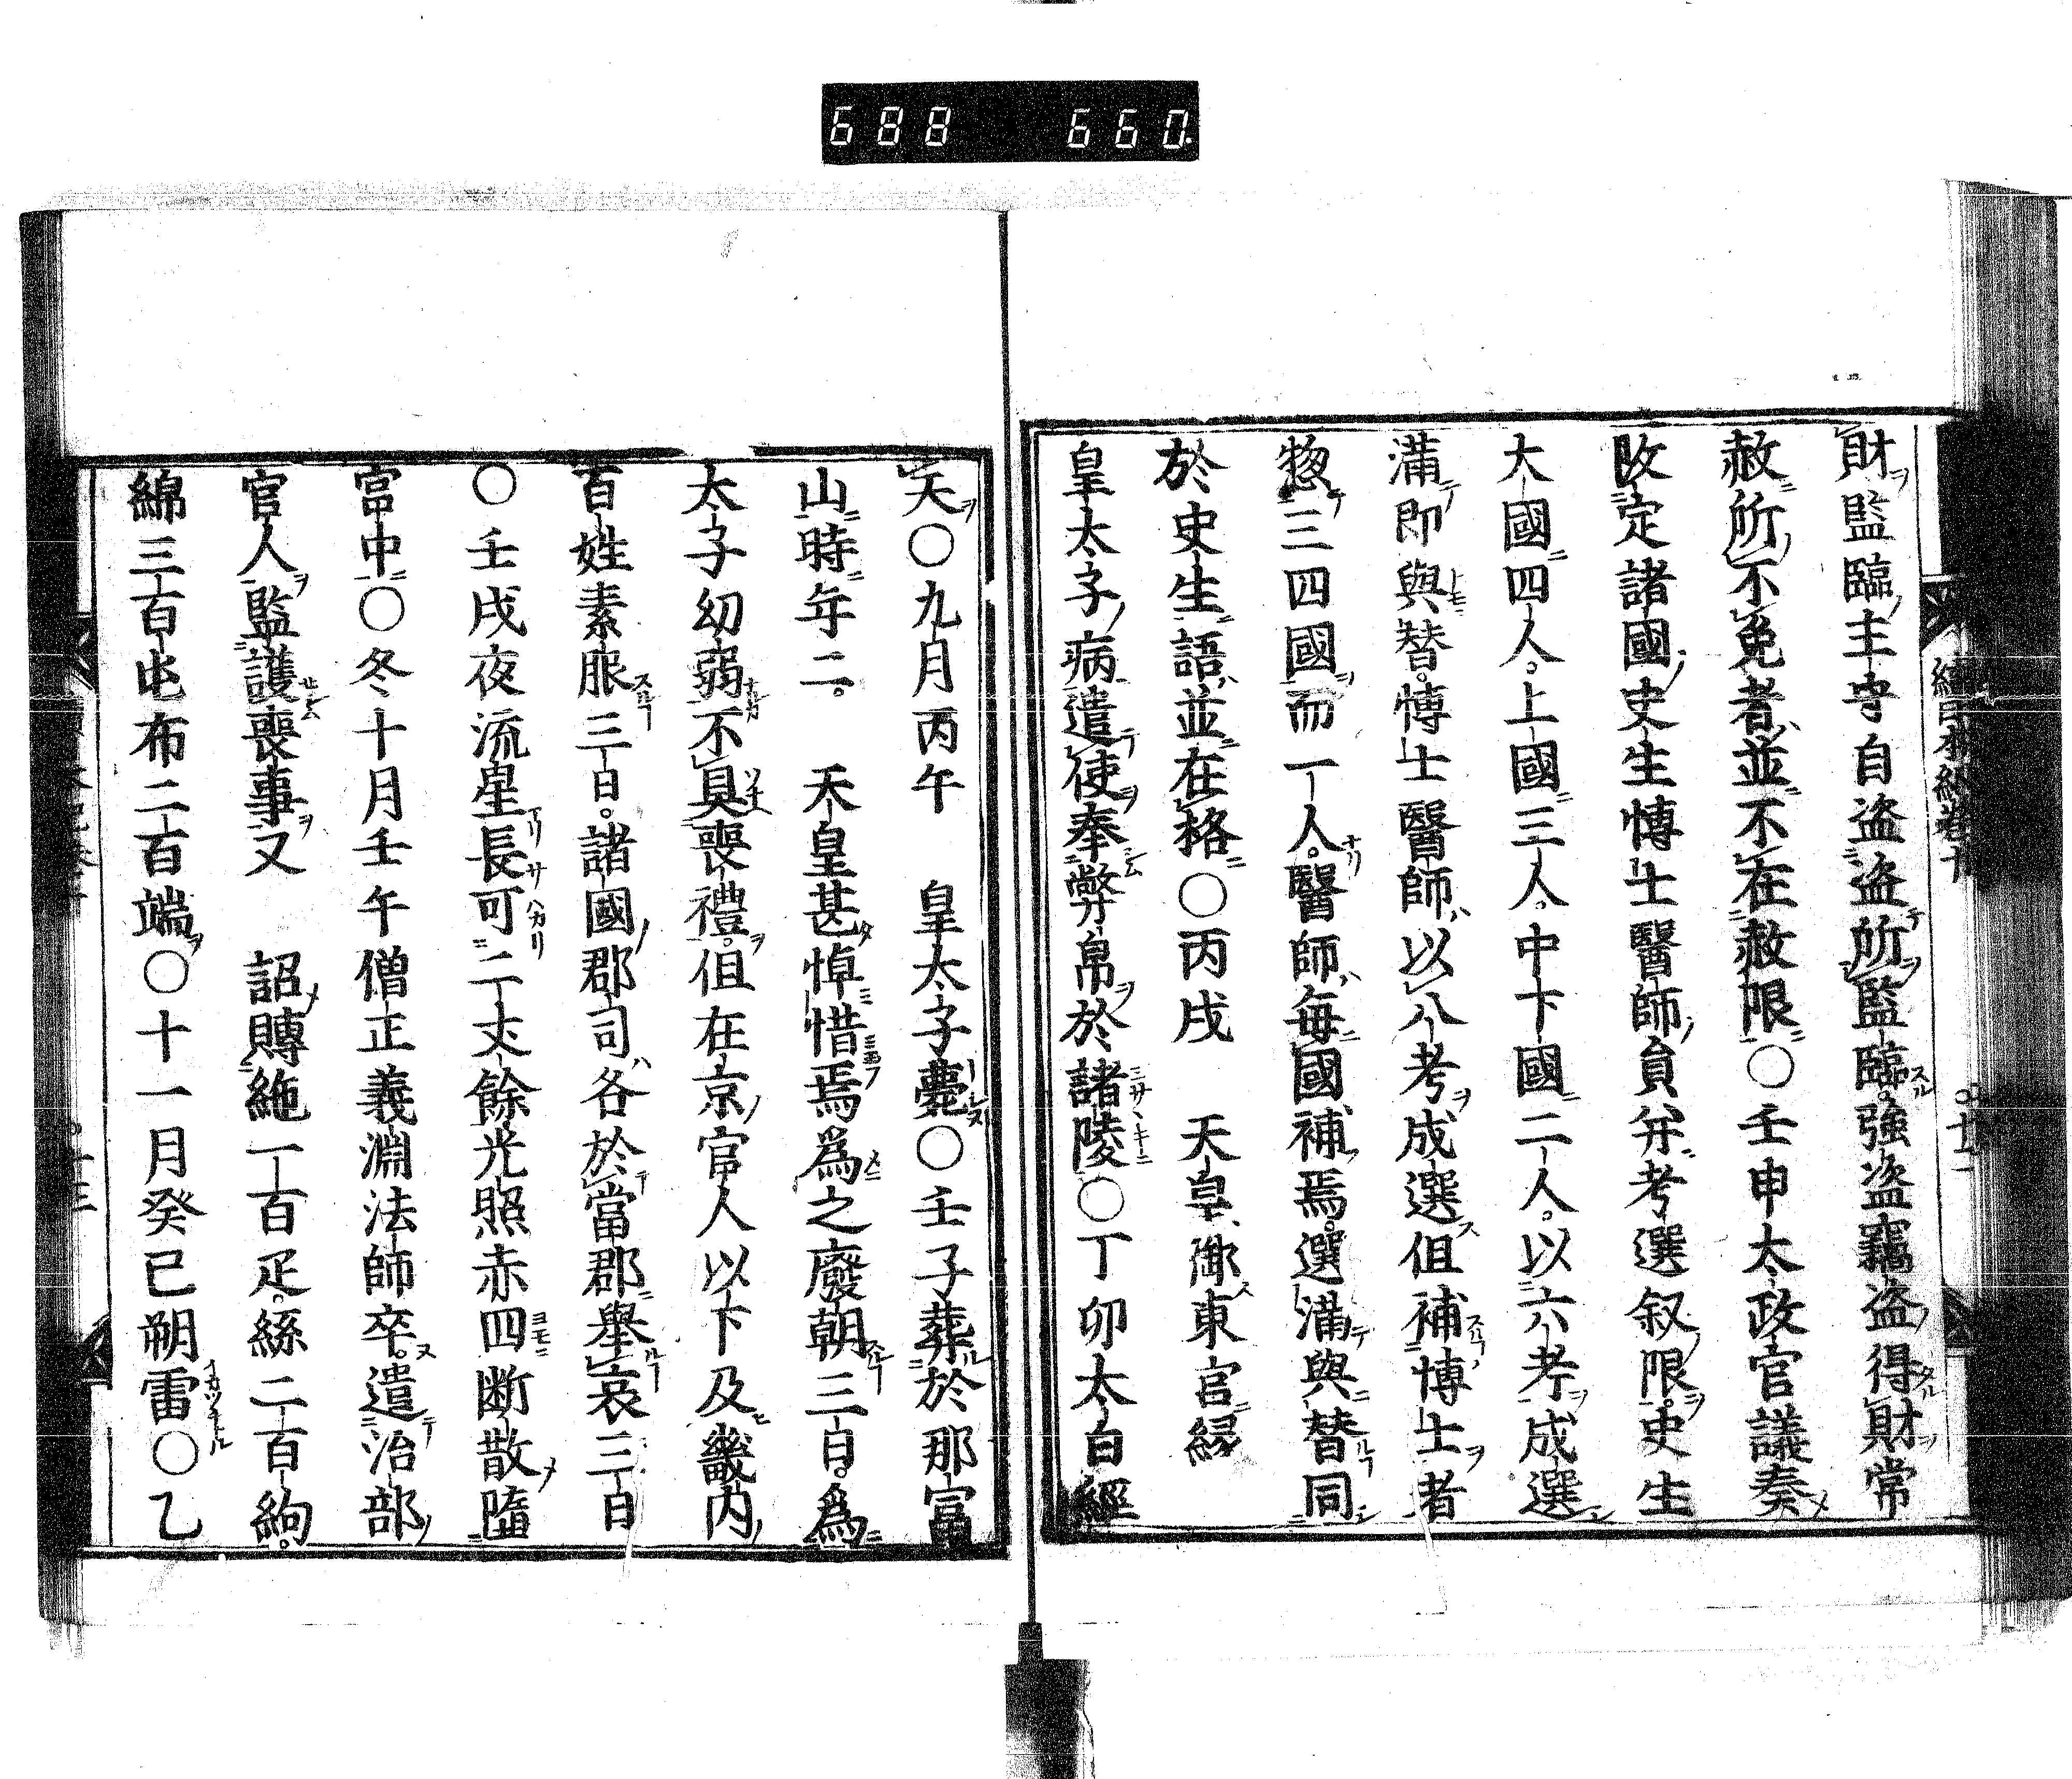 688 660
財監臨主守自盗盗所監臨強盗竊盗得財常
赦所不免者並不在赦限○壬申太政官議奏
改定諸國史生博士醫師員并考選叙限史生
大國四人上國三人中下國二人以六考成選
滿即與替博士醫師以八考成選但補博士者
惣三四國而一人醫師毎國補焉選滿與替同
於史生語並在格○丙戌　天皇御東宮縁
皇太子病遣使奉幣帛於諸陵○丁卯太白經
天○九月丙午　皇太子薨○壬子葬於那富
山時年二　天皇甚悼惜焉爲之廢朝三日爲
太子幼弱不具喪禮但在京官人以下及畿内
百姓素服三日諸國郡司各於當郡擧哀三日
○壬戌夜流星長可二丈餘光照赤四断散墮
宮中○冬十月壬午僧正義淵法師卒遣治部
官人監護喪事又　詔賻絁一百疋絲二百絇
綿三百屯布二百端○十一月癸巳朔雷○乙